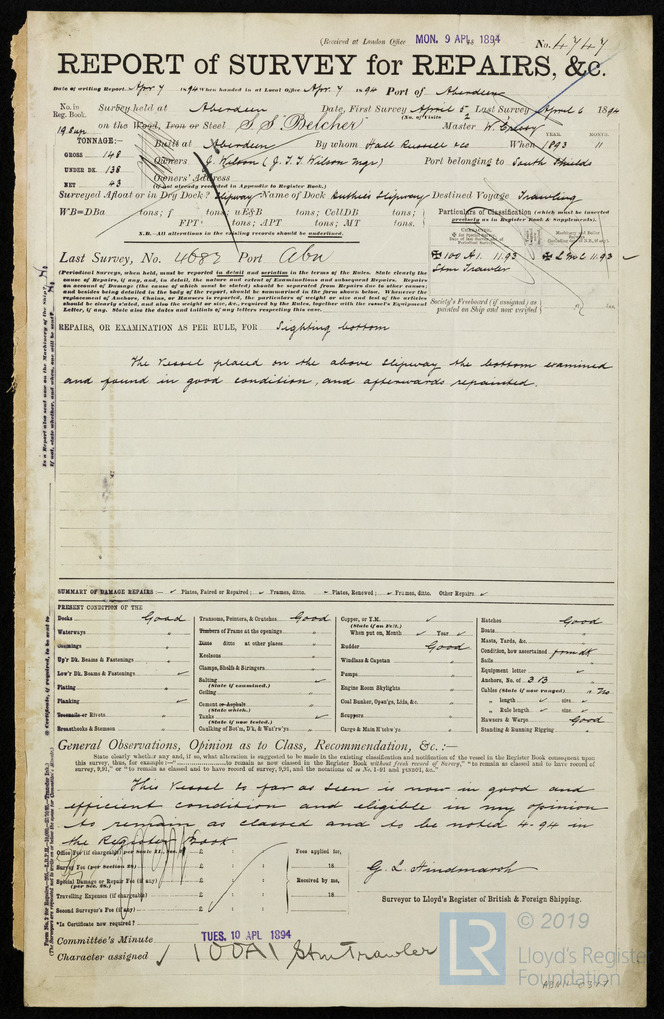 (Received at London Office MON. 9 APL 1894 No. 4747
REPORT of SURVEY for REPAIRS, &c.
Date of writing Report, Apr 7 1894 When handed in at Local Office Apr. 7 1894 Port of Aberdeen
No. in Reg. Book. Survey held at Aberdeen Date, First Survey April 5 Last Survey April 6 1894
(No. of Visits 2
on the Wood, Iron or Steel S.S. "Belcher" Master
TONNAGE:— Built at Aberdeen By whom Hall Russell & Co When 1893 11
YEAR. MONTH.
GROSS 148
UNDER DK. 138
NET 43
Owners J. Wilson (J. T. T. Wilson Mgr) Port belonging to South Shields
Owners' Address
(if not already recorded in Appendix to Register Book.)
Surveyed Afloat or in Dry Dock? Slipway Name of Dock Duthie's Slipway Destined Voyage Trawling
WB=DBa tons; f tons; uE&B tons; CellDB tons;
FPT tons; APT tons; MT tons;
N.B.—All alterations in the existing records should be underlined.
Particulars of Classification (which must be inserted precisely as in Register Book & Supplements).
Last Survey, No. 4083 Port Abn
✠ 100 A1. 11.93
Stm Trawler
✠ LMC 11.93
(Periodical Surveys, when held, must be reported in detail and seriatim in the terms of the Rules. State clearly the
cause of Repairs, if any, and, in detail, the nature and extent of Examinations and subsequent Repairs. Repairs
on account of Damage (the cause of which must be stated) should be separated from Repairs due to other causes;
and besides being detailed in the body of the report, should be summarised in the form shown below. Whenever the
replacement of Anchors, Chains, or Hawsers is reported, the particulars of weight or size and test of the articles
should be clearly stated, and also the weight or size, &c., required by the Rules, together with the vessel's Equipment
Letter, if any. State also the dates and initials of any letters respecting this case.
Society's Freeboard (if assigned) as
painted on Ship and now verified
REPAIRS, OR EXAMINATION AS PER RULE, FOR Sighting bottom
The Vessel placed on the above slipway the bottom examined
and found in good condition, and afterwards repainted.
SUMMARY OF DAMAGE REPAIRS:— Plates, Faired or Repaired; Frames, ditto. Plates, Renewed; Frames, ditto. Other Repairs.
PRESENT CONDITION OF THE
Decks Good
Waterways "
Coamings "
Up'r Dk. Beams & Fastenings "
Low'r Dk. Beams & Fastenings
Plating "
Planking
Treenails or Rivets "
Breasthooks & Stemson "
Transoms, Pointers, & Crutches Good
Timbers of Frame at the openings "
Ditto ditto at other places "
Keelsons "
Clamps, Shelfs & Stringers "
Salting
(State if examined.)
Ceiling "
Cement or Asphalt "
(State which.)
Tanks
(State if now tested.)
Caulking of Bot'm, D'k, & Wat'rw'ys "
Copper, or Y.M.
(State if on Felt.)
When put on, Month Year
Rudder Good
Windlass & Capstan "
Pumps "
Engine Room Skylights "
Coal Bunker, Open'gs, Lids, &c. "
Scuppers "
Cargo & Main H'tchw'ys "
Hatches Good
Boats "
Masts, Yards, &c. "
Condition, how ascertained from dk
Sails "
Equipment letter
Anchors, No. of 3 B
Cables (State if now ranged) no
" length size
" Rule length size
Hawsers & Warps Good
Standing & Running Rigging "
General Observations, Opinion as to Class, Recommendation, &c.:—
State clearly whether any and, if so, what alteration is suggested to be made in the existing classification and notification of the vessel in the Register Book consequent upon
this survey, thus, for example:— "........ to remain as now classed in the Register Book without fresh record of Survey," "to remain as classed and to have record of
survey, 9,91," or "to remain as classed and to have record of survey, 9,91, and the notations of
This Vessel so far as seen is now in good and
efficient condition and eligible in my opinion
to remain as classed and to be noted 4.94 in
the Register Book
Office Fee (if chargeable) per Scale II., Sec. £ : : Fees applied for,
Survey Fee (per Section 28) £ : : 18
Special Damage or Repair Fee (if any) £ : : Received by me,
(per Sec. 28.)
Travelling Expenses (if chargeable) £ : : 18
Second Surveyor's Fee (if any) £ : :
G. L. Hindmarsh
Surveyor to Lloyd's Register of British & Foreign Shipping.
*Is Certificate now required?
Committee's Minute TUES. 10 APL 1894
Character assigned 100A1 Stm Trawler
LR © 2019
Lloyd's Register
Foundation